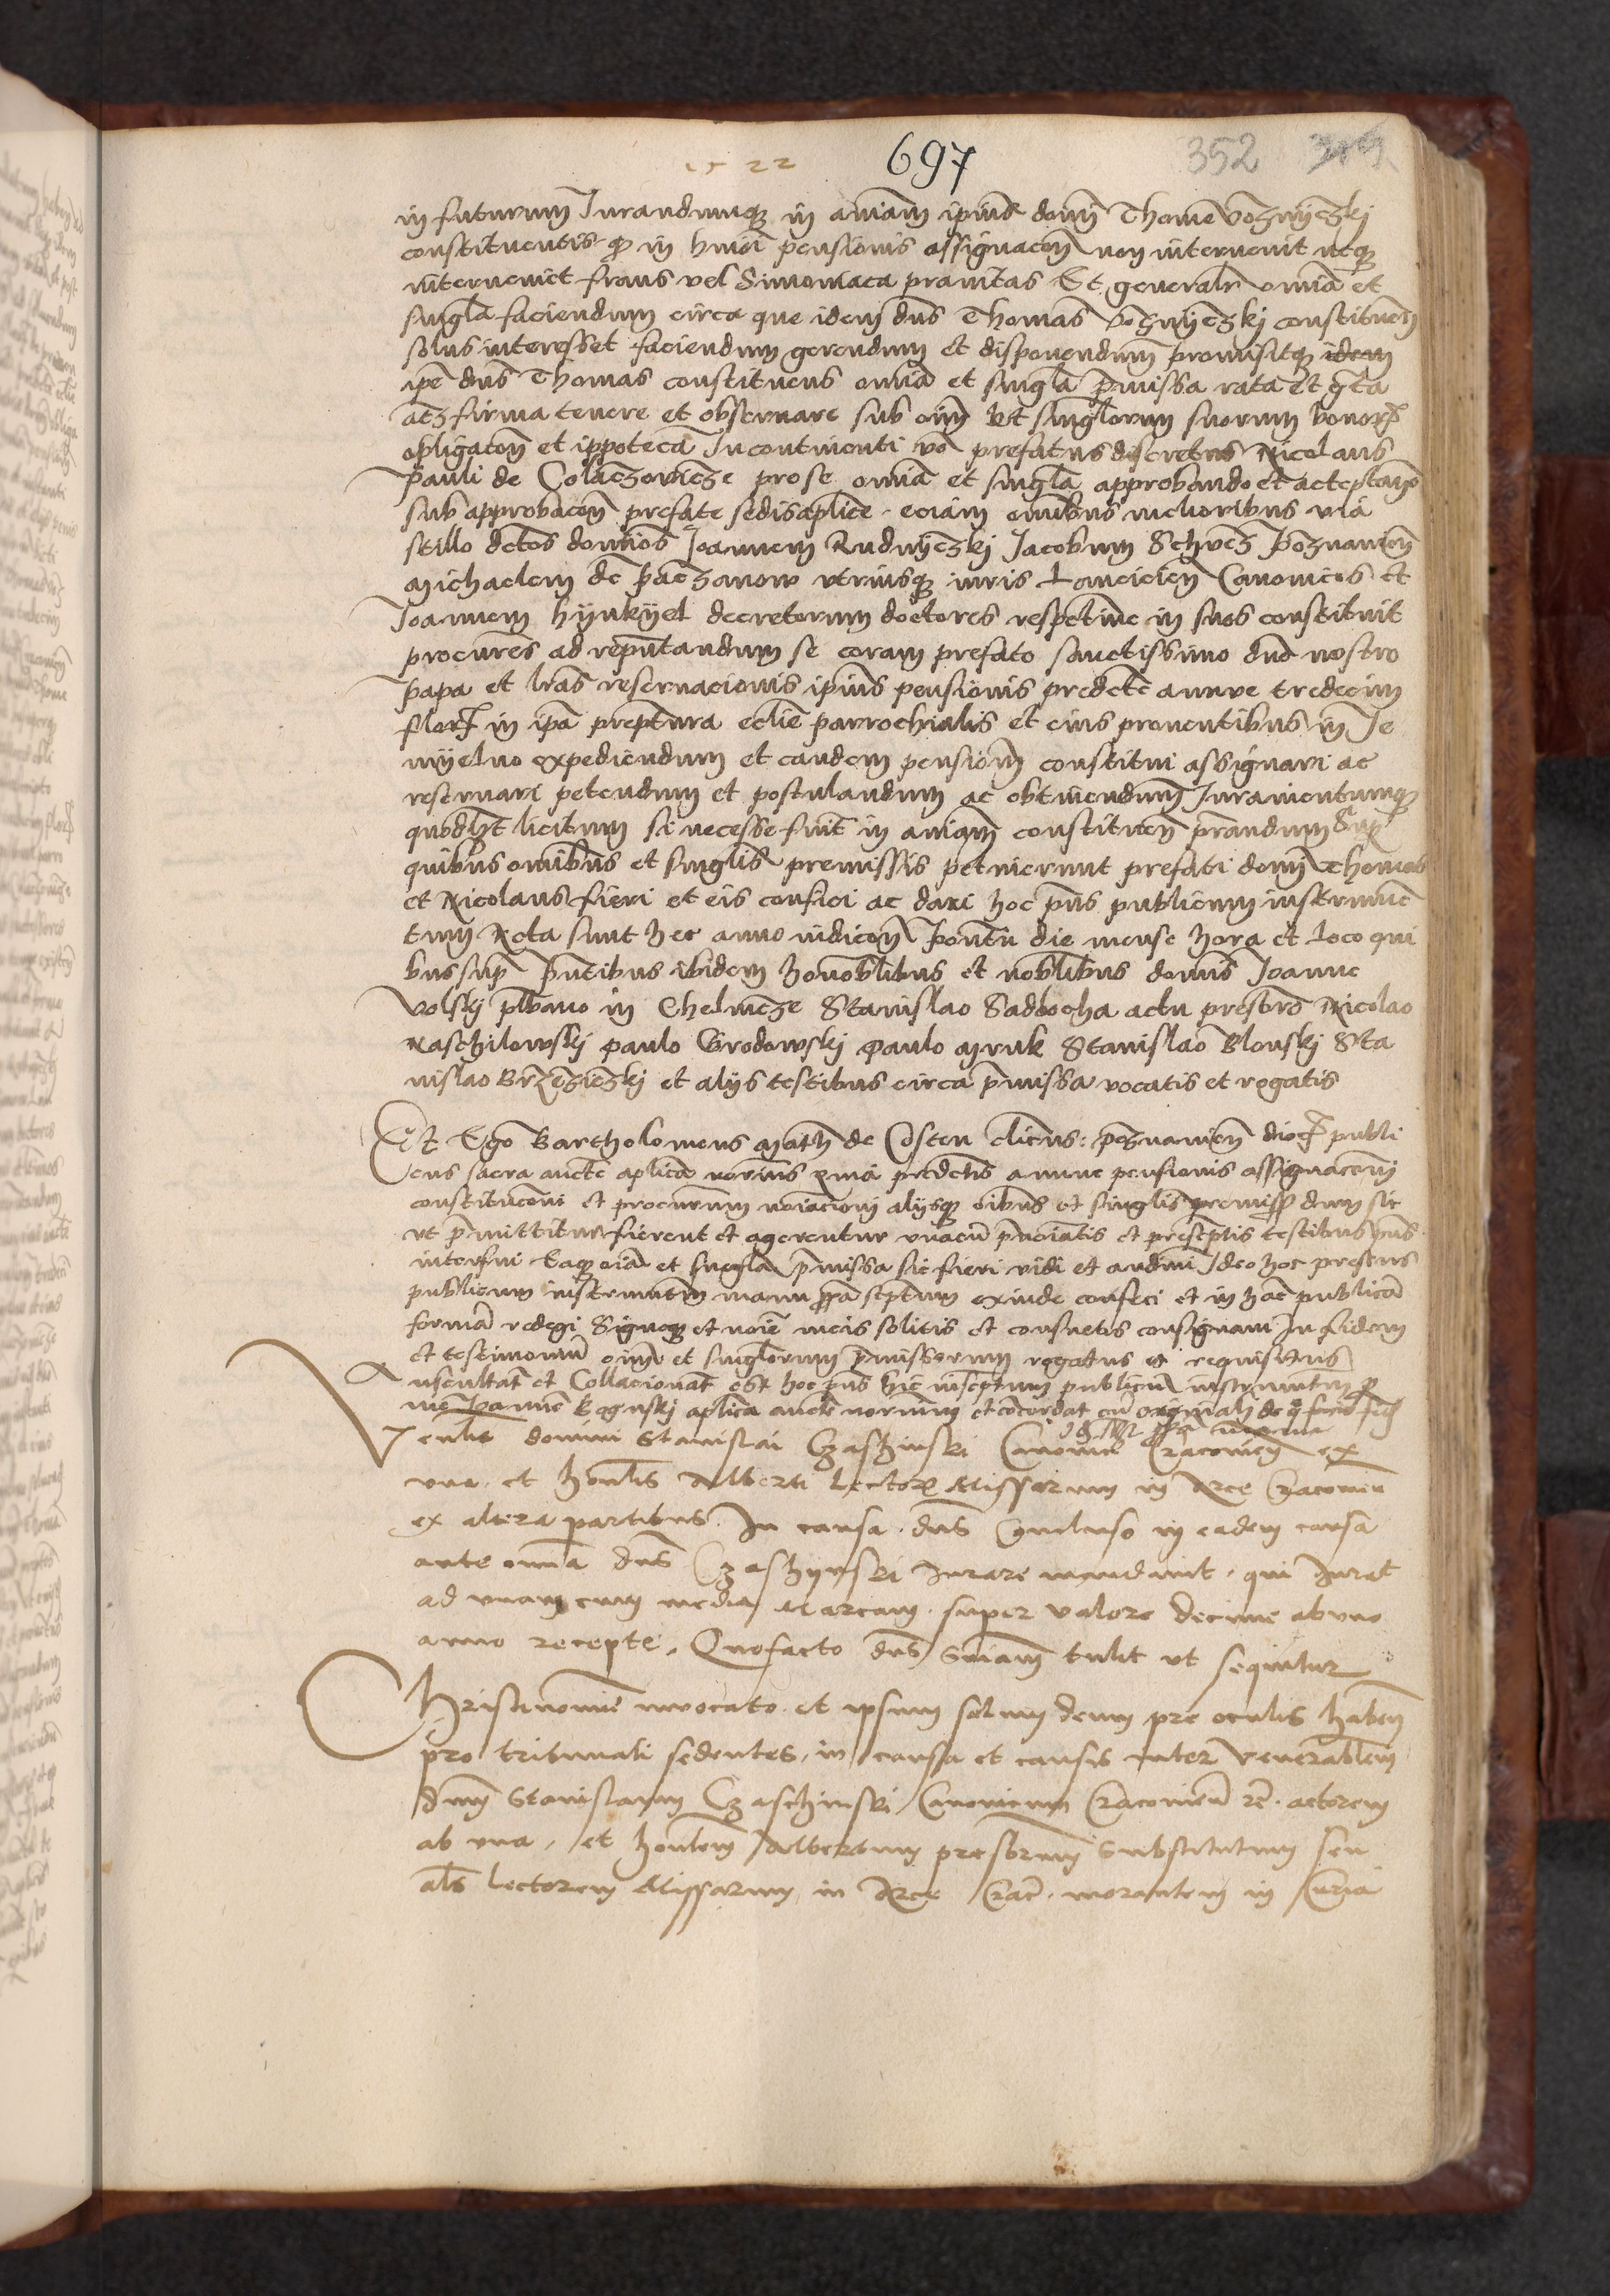 1522 697 352
in futurum Jurandumq in aniam ipius domi Thome Voznyczskj
constituentis q in hmoi pensionis assignacon non intervenit neq
interveniet fraus vel Simoniaca pravitas Et generalr omia et
singla faciendum circa que idem dns Thomas Voznyczskj constituen
solus interesset faciendum gerendum et disponendum promisitq idem
ipe dns Thomas constituens omia et singla pmissa rata et gta
atz firma tenere et observare sub oim et singlorum suorum bonor
obligacon et ippoteca Incontinenti vo prefatus discretus Nicolaus
Pauli de Colaczowicze pro se omia et singla approbando et acceptando
sub approbacon prefate sedis aplice eciam omibus melioribus via
stillo dctos domios Joannem Rudnyczskj Jacobum Schvcz Poznanien
Michaelem de Paczanow utriusq iuris Lancicien Canonicos et
Joannem hynkyel decretorum doctores respctive in suos constituit
procures ad reputandum se coram prefato sanctissimo dno nostro
papa et lras reservacionis ipius pensionis predcte annue tredecim
flor in ipa preptura eclie parrochialis et eius proventibus in Je
myelno expediendum et eandem pension constitui assignari ac
reservari petendum et postulandum ac obtinendum Juramentumq
quodlt licitum si necesse fuit in aniam constituen prandum Sup
quibus omibus et singlis premissis petuerunt prefati domi Thomas
et Nicolaus fieri et eis confici ac dari hoc pns publicum instrumen
tum Acta sunt hec anno indicon Pontu die mense hora et loco qui
bus sup pntibus ibidem honoblibus et noblibus domis Joanne
Volskj plbano in Chelmcze Stanislao Sadbocha actu presbro Nicolao
Naschilowskj Paulo Grodowskj Paulo Mruk Stanislao Blonskj Sta
nislao Brzezienskj et alijs testibus circa pmissa vocatis et rogatis
Et Ego Bartholomeus Math de Costen clicus poznanien dioc publi
cus sacra aucte aplica norius quia predctis annue pensionis assignacioni
constitucioni et procurum noiacioni alijsq oibus et singlis premissis dum sic
ut pmittitur fierent et agerentur unacu pnoiatis et prescptis testibus pns
interfui Eaq oia et singla pmissa sic fieri vidi et audivi Ideo hoc presens
publicum instrumentm manu ppa scptum exinde confeci et in hac publica
forma redegi Signoq et noie meis solitis et consuetis consignavi In fidem
et testimoniu oim et singlorum pmissorum rogatus et requisitus
Auscultat et Collacionat est hoc pns hic inscptum publicu instrumentm p
me Joanne aplica aucte norium et concordat cu originali de q
Venlis domini Stanislai Czaschinski Canonici Cracovien ex
una et honlis Alberti Lectoris Missarum in Arce Cracovien
ex altera partibus In causa dns Concluso in eadem causa
ante omia dns Czaschynski Jurare mandavit qui Jurat
ad unam cum media Marcam super valore decime ab uno
anno recepte Quo facto dns Sniam tulit ut sequitur
Christi nomine invocato et ipsum solum deum pre oculis haben
pro tribunali sedentes in causa et causis inter venerablem
dnm Stanislaum Czaschinski Canonicum Cracovien rc actorem
ab una et honlem Albertum presbrum Substitutum seu
als lectorem Missarum in Arce Crac morantem in Curia